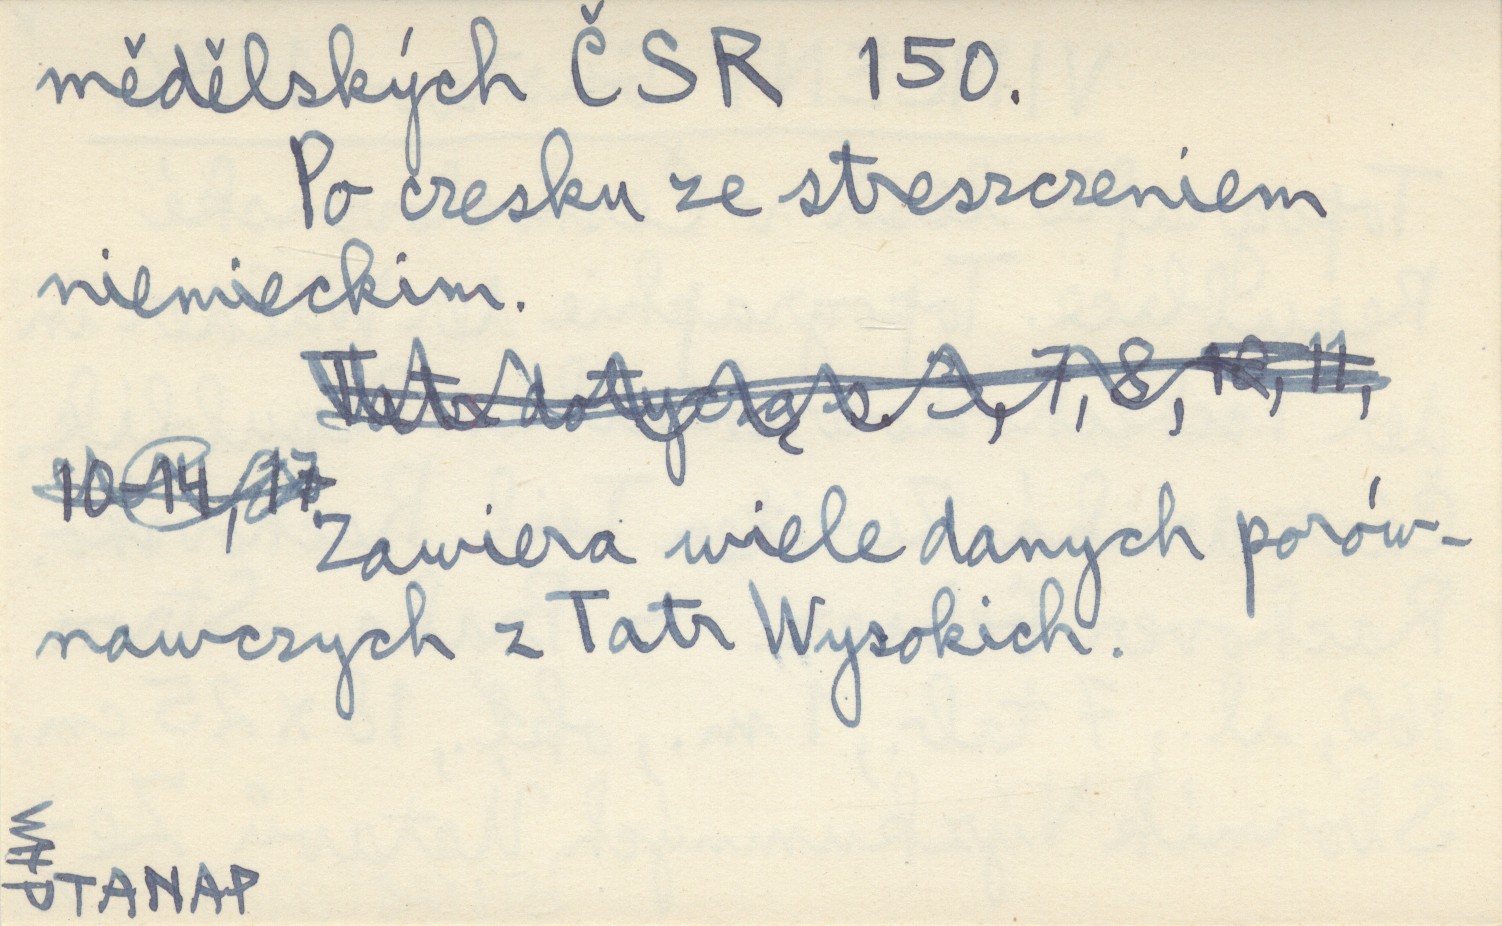 mědělských ČSR 150.
Po czesku ze streszczeniem
niemieckim.
Tatr dotyczą s. 3, 7, 8, 10, 11,
10-14, 17
Zawiera wiele danych porów-
nawczych z Tatr Wysokich.
TANAP